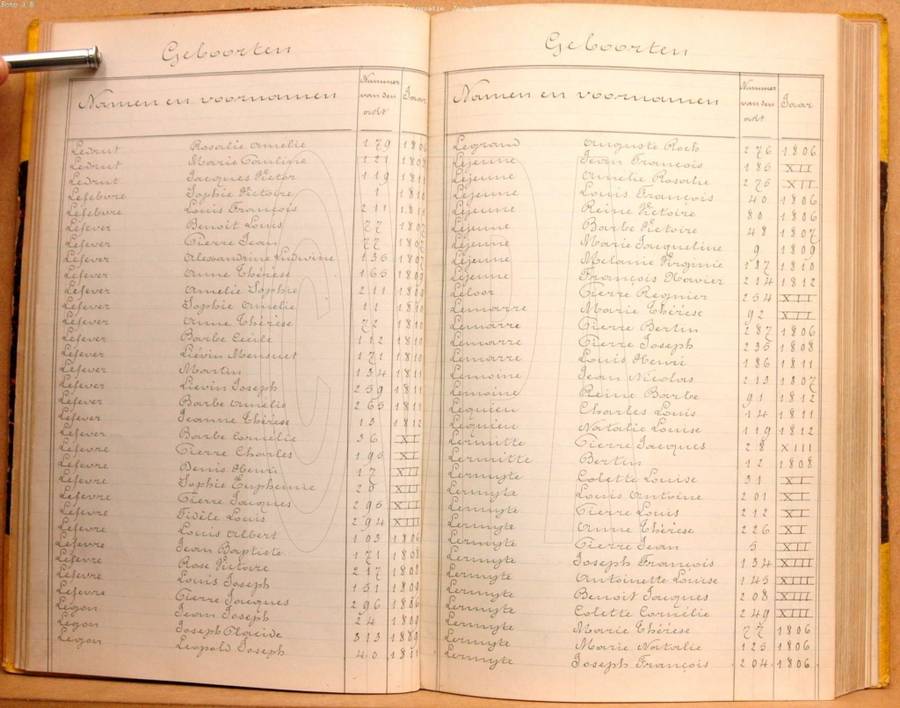 Geboorten
Namen en voornamen Nummer van den acte Jaar
Ledrut Rosalie Amélie 179 1806
Ledrut Marie Pauline 121
Ledrut Jacques Victor 119
Lefebvre Sophie Victoire 1
Lefebvre Louis François 211
Lefever Benoit Louis 77 1807
Lefever Pierre Jean 77 1807
Lefever Alexandrine Ludwine 136 1807
Lefever Anne Thérèse 165 1809
Lefever Amelie Sophie 211
Lefever Sophie Amelie 11 1810
Lefever Anne Thérèse 72 1810
Lefever Barbe Cecile 112 1810
Lefever Liévin Mensuet 171 1810
Lefever Martin 134 1811
Lefever Lievin Joseph 259 1811
Lefever Barbe Amelie 265 1811
Lefever Jeanne Thérèse 13 1812
Lefever Barbe Cornélie 36 XI
Lefevre Pierre Charles 195 XI
Lefevre Denis Henri 17 XII
Lefevre Sophie Euphemie XII
Lefevre Pierre Jacques 295 XII
Lefevre Fidèle Louis 294 XIII
Lefevre Louis Albert 103 1806
Lefevre Jean Baptiste 171 1808
Lefevre Rose Victoire 217
Lefevre Louis Joseph 151
Lefevre Pierre Jacques 296 1806
Legon Jean Joseph 24
Legon Joseph Placide 313
Legon Leopold Joseph 40
Geboorten
Namen en voornamen Nummer van den acte Jaar
Legrand Auguste Roch 276 1806
Lejeune Jean François 185 XII
Lejeune Amelie Rosalie 275 XII
Lejeune Louis François 40 1806
Lejeune Reine Victoire 80 1806
Lejeune Barbe Victoire 48 1807
Lejeune Marie Jacqueline 9 1809
Lejeune Melanie Virginie 187 1810
Lejeune François Xavier 214 1812
Leloor Pierre Regnier 254 XII
Lemarre Marie Thérèse 92 XII
Lemarre Pierre Bertin 287 1806
Lemarre Pierre Joseph 235 1808
Lemarre Louis Henri 186 1811
Lemoine Jean Nicolas 213 1807
Lemoine Reine Barbe 91 1812
Lequien Charles Louis 14 1811
Lequien Natalie Louise 119 1812
Lermitte Pierre Jacques 28 XIII
Lermitte Bertin 12 1808
Lermyte Colette Louise 31 XI
Lermyte Louis Antoine 201 XI
Lermyte Pierre Louis 212 XI
Lermyte Anne Thérèse 226 XI
Lermyte Pierre Jean 5 XII
Lermyte Joseph François 134 XIII
Lermyte Antoinette Louise 145 XIII
Lermyte Benoit Jacques 208 XIII
Lermyte Colette Cornélie 249 XIII
Lermyte Marie Thérèse 77 1806
Lermyte Marie Natalie 125 1806
Lermyte Joseph François 204 1806